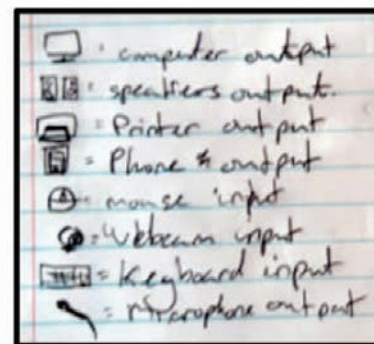 : computer output
: speakers output.
= Printer output
= Phone & output
= mouse input
= Webcam input
= Keyboard input
= microphone output